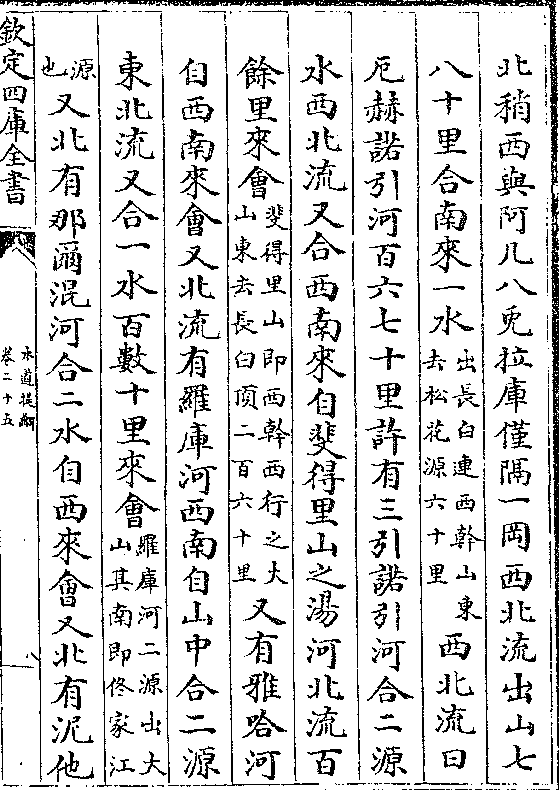 北稍西與阿几八兎拉庫僅隔一岡西北流出山七
八十里合南來一水出長白連西幹山東去松花源六十里西北流曰
厄赫諾引河百六七十里許有三引諾引河合二源
水西北流又合西南來自斐得里山之湯河北流百
餘里來會斐得里山即西幹西行之大山東去長白頂二百六十里又有雅哈河
自西南來會又北流有羅庫河西南自山中合二源
東北流又合一水百數十里來會羅庫河二源出大山其南即佟家江
源也又北有那爾混河合二水自西來會又北有泥他
欽定四庫全書
水道提綱
卷二十五
八